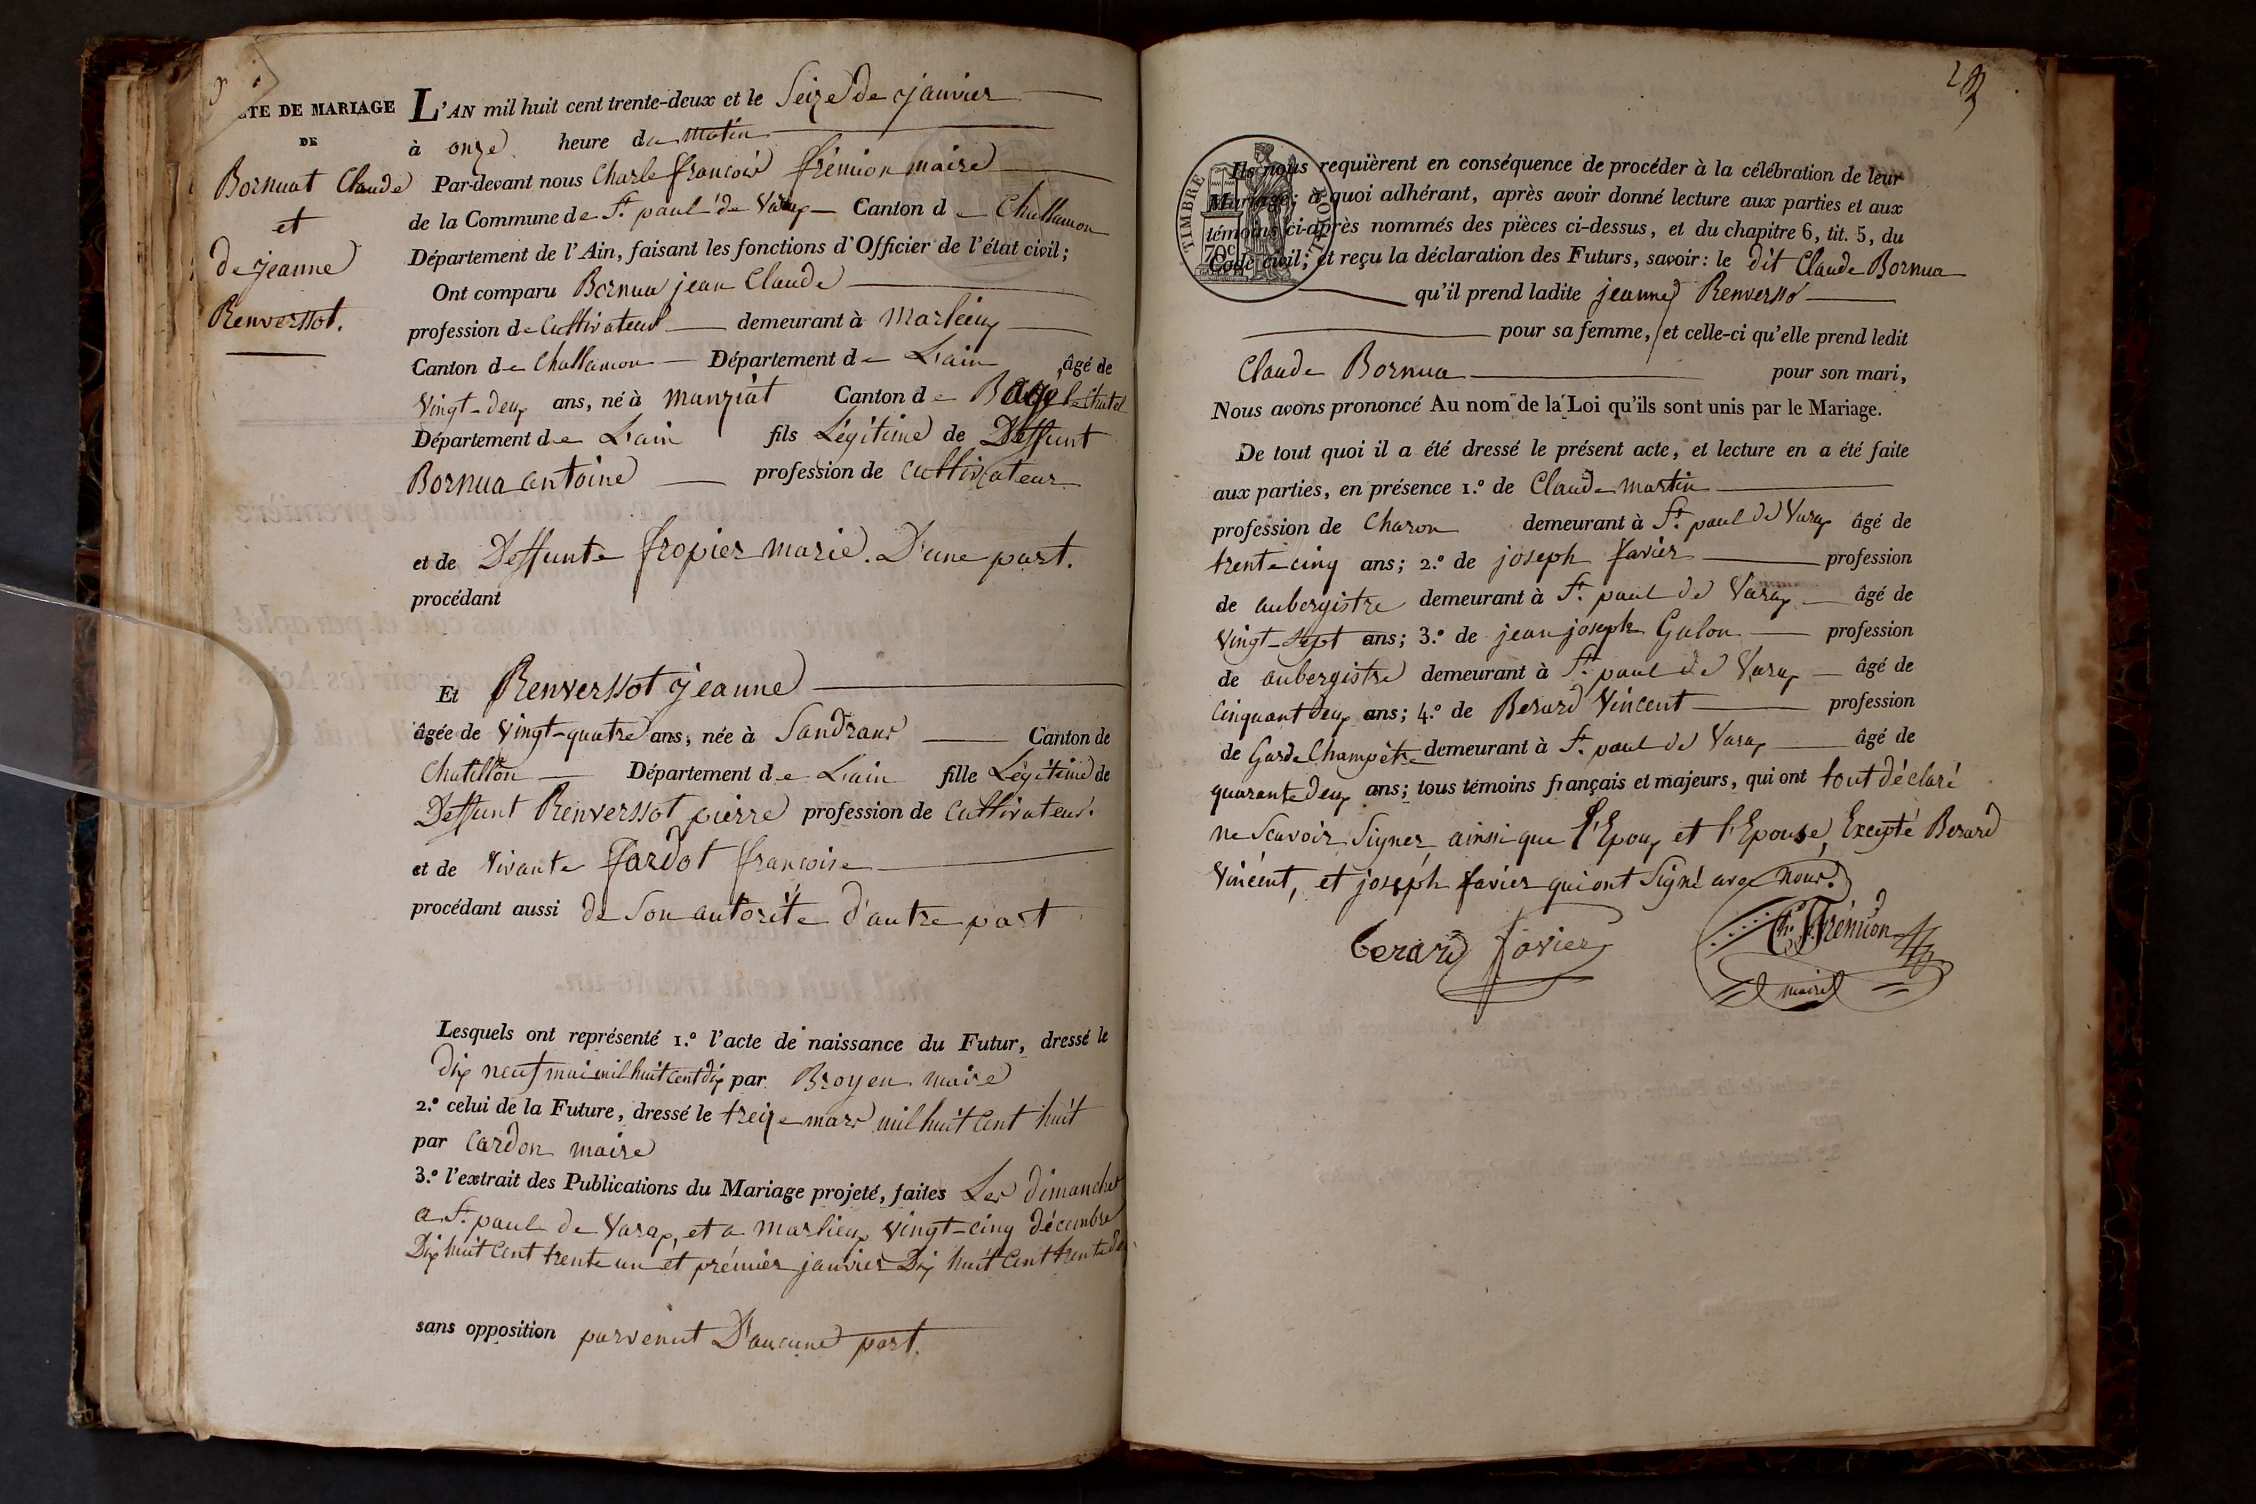 ACTE DE MARIAGE
DE
Bornuat Claude
et
de jeanne
Renverssot.
L'AN mil huit cent trente-deux et le Seize de janvier
à onze heure du matin
Par-devant nous Charle françois frémion maire
de la Commune de St. paul de Varax Canton de Challamon
Département de l'Ain, faisant les fonctions d'Officier de l'état civil;
Ont comparu Bornua jean Claude
profession de Cultivateur demeurant à Marlieux
Canton de Challamon Département de L'ain âgé de
Vingt-deux ans, né à manziat Canton de Bagé le chatel
Département de L'ain fils Légitime de Deffunt
Bornua antoine profession de Cultivateur
et de Deffunte fropier marie. D'une part.
procédant
Et Renverssot jeanne
âgée de Vingt-quatre ans, née à Sandrans Canton de
Chatillon Département de L'ain fille Légitime de
Deffunt Renverssot pierre profession de Cultivateur.
et de Vivante fardot françoise
procédant aussi de Son autorité d'autre part
Lesquels ont représenté 1.º l'acte de naissance du Futur, dressé le
dix neuf mai mil huit cent dix par Broyeu maire
2.º celui de la Future, dressé le treize mars mil huit cent huit
par Cardon maire
3.º l'extrait des Publications du Mariage projeté, faites Les dimanches
a St. paul de Varax, et a Marlieux Vingt-cinq décembre
Dix huit Cent trente un et prémier janvier Dix huit Cent trente deux
sans opposition parvenut D'aucune part.
TIMBRE ROYAL
70c
Ils nous requièrent en conséquence de procéder à la célébration de leur
Mariage; à quoi adhérant, après avoir donné lecture aux parties et aux
témoins ci-après nommés des pièces ci-dessus, et du chapitre 6, tit. 5, du
Code civil; et reçu la déclaration des Futurs, savoir: le dit Claude Bornua
qu'il prend ladite jeanne Renversso
pour sa femme, et celle-ci qu'elle prend ledit
Claude Bornua pour son mari,
Nous avons prononcé Au nom de la Loi qu'ils sont unis par le Mariage.
De tout quoi il a été dressé le présent acte, et lecture en a été faite
aux parties, en présence 1.º de Claude Martin
profession de Charon demeurant à St. paul de Varax âgé de
trente cinq ans; 2.º de joseph favier profession
de aubergistre demeurant à St. paul de Varax âgé de
Vingt-sept ans; 3.º de jean joseph Galon profession
de aubergistre demeurant à St. paul de Varax âgé de
Cinquant deux ans; 4.º de Berard Vincent profession
de Garde Champètre demeurant à St. paul de Varax âgé de
quarante deux ans; tous témoins français et majeurs, qui ont tout déclaré
ne Scavoir Signer ainsi que l'Epoux et l'Epouse, Excepté Berard
Vincent, et joseph favier qui ont Signé avec nous.
berard favier Ch. Frémion
maire